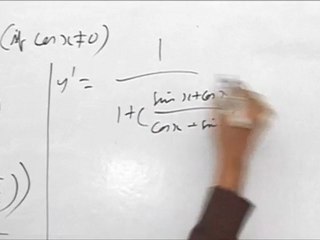 (if cos x ≠ 0)
y' = 1
1 + ( sin x + cos x
cos x - sin
))